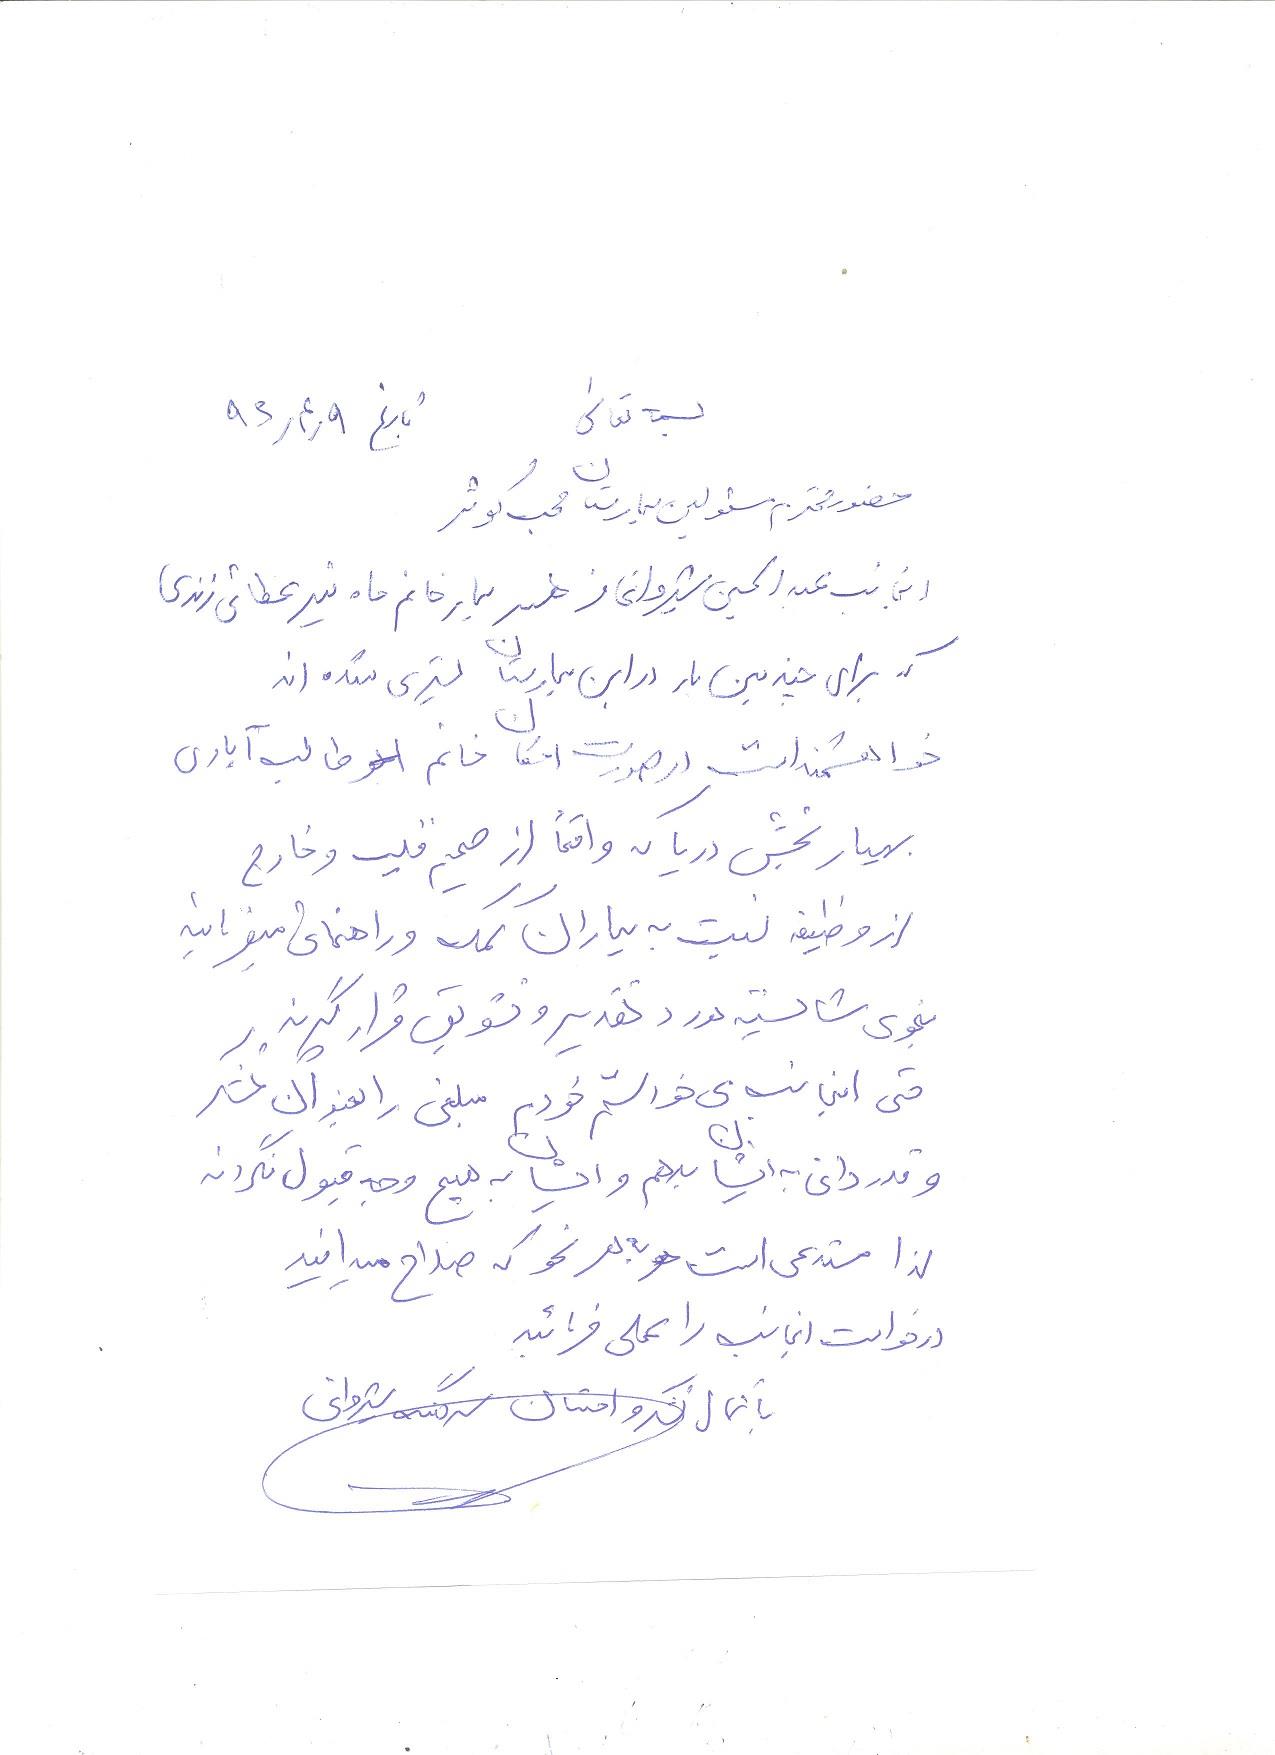 بسمه تعالی تاریخ ۹۶٫۴٫۹
حضور محترم مسئولین بیمارستان محب کوثر
اینجانب عبدالحسین شیروانی فرزند بیمار خانم ماه منیر عطائی زندی
که برای چندمین بار در این بیمارستان بستری شده اند
خواهشمند است در صورت امکان خانم طالب آبادی
بهیار بخش دریا که واقعاً از صمیم قلب و خارج
از وظیفه نسبت به بیماران کمک و راهنمائی میفرمائید
بنحوی شایسته مورد تقدیر و تشویق قرار گیرند
حتی اینجانب می خواستم خودم مبلغی را بعنوان تشکر
و قدردانی به ایشان بدهم و ایشان به هیچ وجه قبول نکردند
لذا مستدعی است به هر نحو که صلاح میدانید
درخواست اینجانب را عملی فرمائید
با کمال تشکر و امتنان شیروانی